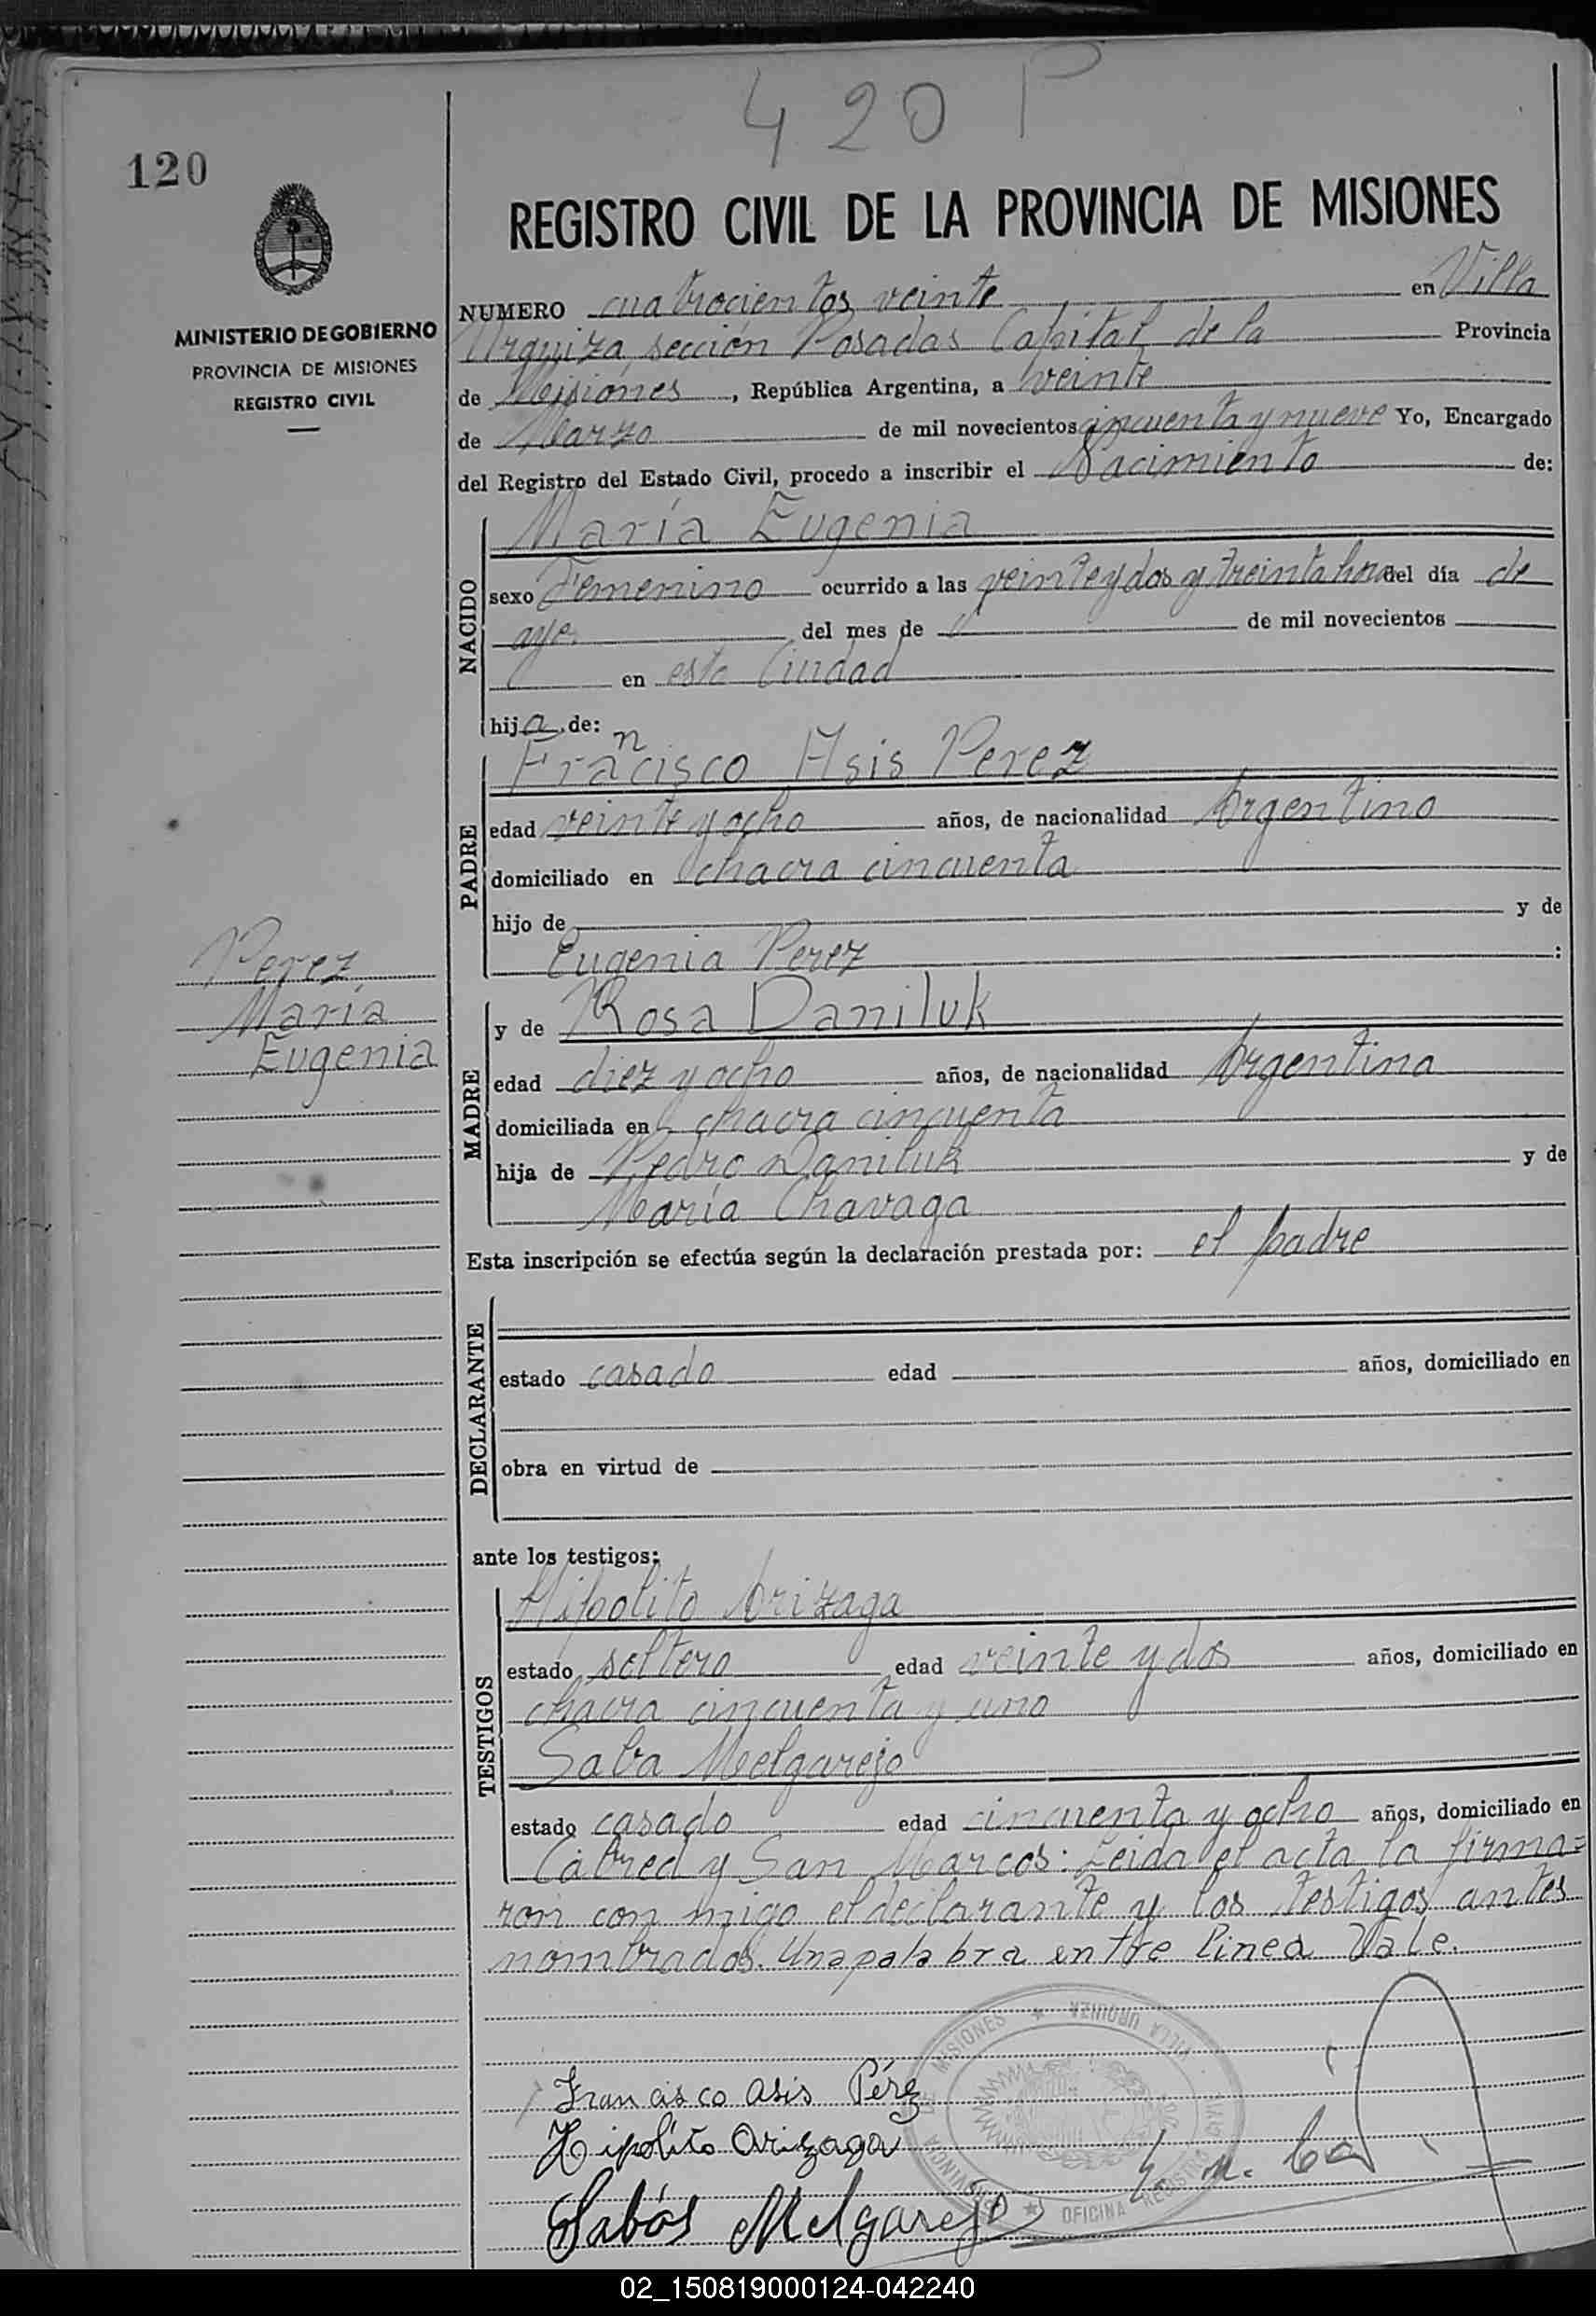 420 P
120
REGISTRO CIVIL DE LA PROVINCIA DE MISIONES
MINISTERIO DE GOBIERNO
PROVINCIA DE MISIONES
REGISTRO CIVIL
NUMERO cuatrocientos veinte en Villa
Urquiza sección Posadas Capital de la Provincia
de Misiones, República Argentina, a veinte
de Marzo de mil novecientos cincuenta y nueve Yo, Encargado
del Registro del Estado Civil, procedo a inscribir el Nacimiento de:
NACIDO
María Eugenia
sexo Femenino ocurrido a las veinte y dos y treinta horas del día de
ayer del mes de de mil novecientos
en esta Ciudad
hija de:
PADRE
n
Fracisco Asis Perez
edad veinte y ocho años, de nacionalidad Argentino
domiciliado en chacra cincuenta
hijo de y de
Eugenia Perez :
Perez
María
Eugenia
MADRE
y de Rosa Daniluk
edad diez y ocho años, de nacionalidad Argentina
domiciliada en chacra cincuenta
hija de Pedro Daniluk y de
María Chavaga
Esta inscripción se efectúa según la declaración prestada por: el padre
DECLARANTE
estado casado edad años, domiciliado en
obra en virtud de
ante los testigos:
TESTIGOS
Hipolito Arizaga
estado soltero edad veinte y dos años, domiciliado en
chacra cincuenta y uno
Saba Melgarejo
estado casado edad cincuenta y ocho años, domiciliado en
Cabred y San Marcos: Leida el acta la firma=
ron con migo el declarante y los testigos antes
nombrados. Una palabra entre linea Vale.
MISIONES ★ VILLA URQUIZA
OFICINA REGISTRO CIVIL
Francisco Asis Pérez
Hipólito Arizaga
Sabás Melgarejo
02_150819000124-042240